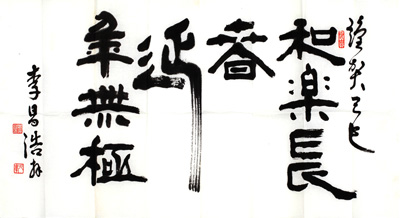 謹賀
和樂長
春
延
年無極
李昌浩